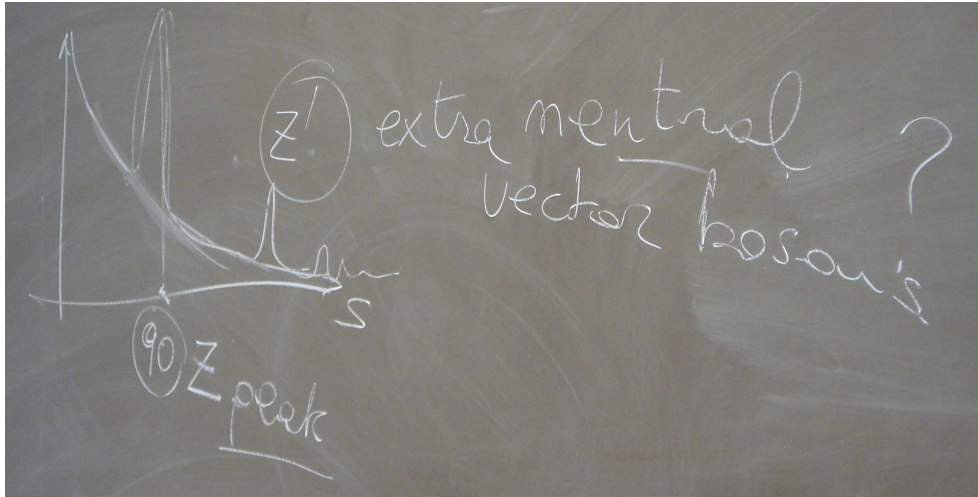 Z' extra neutral ?
vector boson's
S
90 Z peak